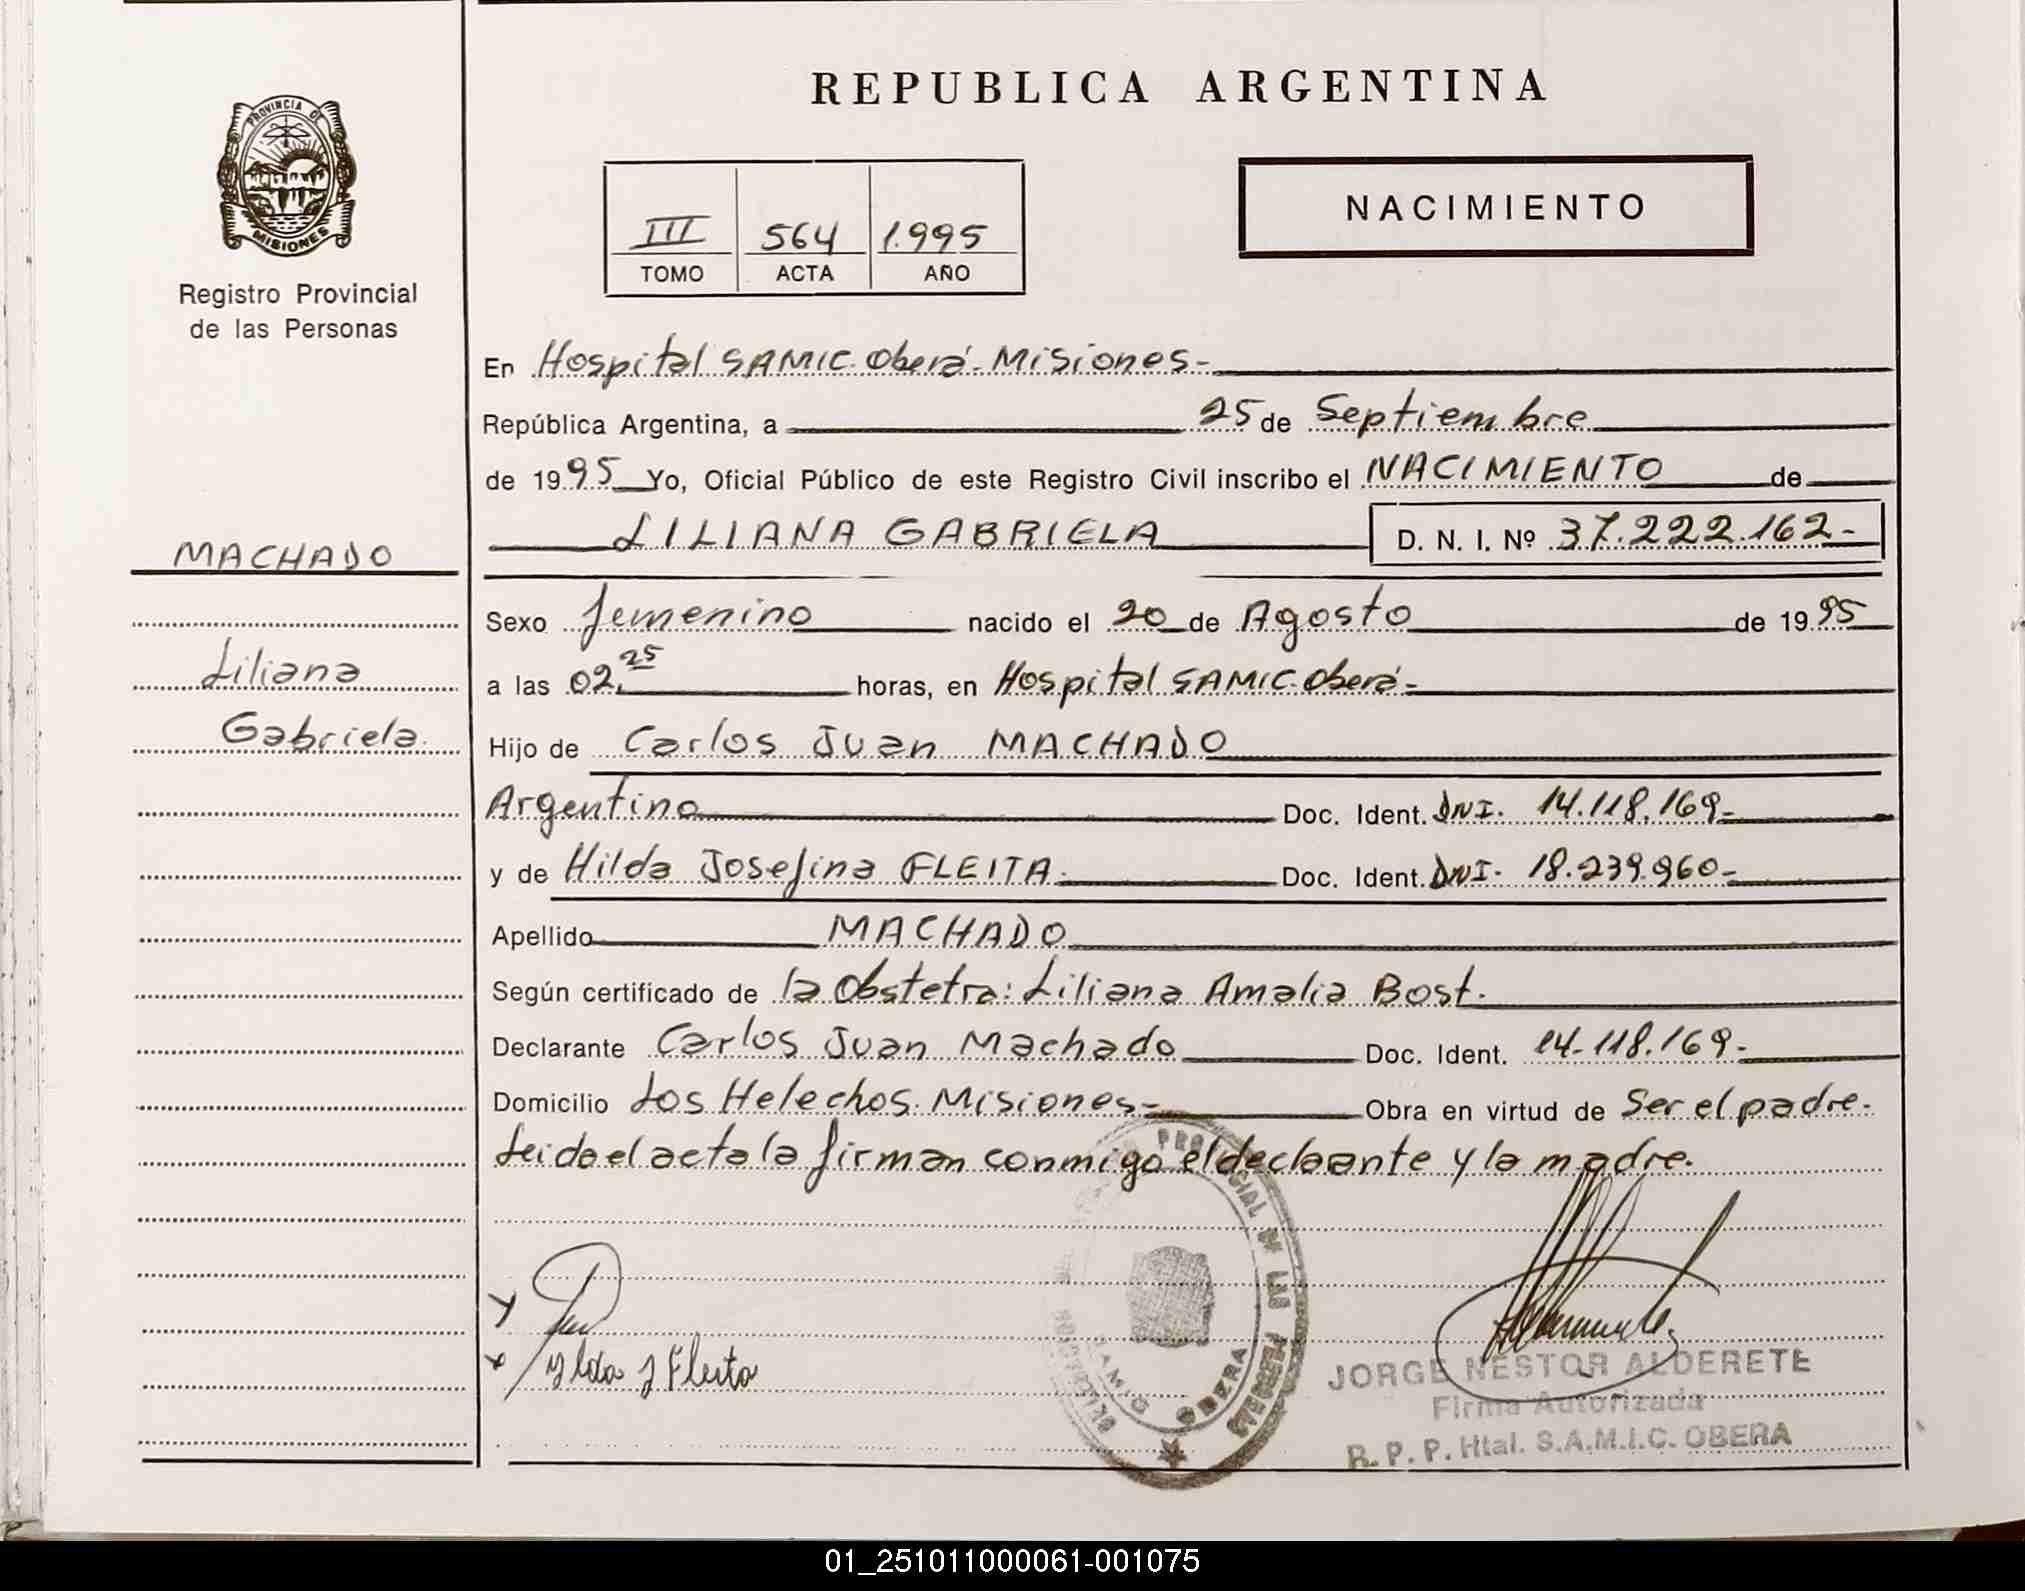 REPUBLICA ARGENTINA
PROVINCIA DE
MISIONES
Registro Provincial
de las Personas
NACIMIENTO
III 564 1.995
TOMO ACTA AÑO
En Hospital SAMIC. Oberá - Misiones-
República Argentina, a 25 de Septiembre
de 1995 Yo, Oficial Público de este Registro Civil inscribo el NACIMIENTO de
MACHADO
LILIANA GABRIELA D. N. I. Nº 37.222.162-
Sexo femenino nacido el 20 de Agosto de 1995
Liliana
a las 02.25 horas, en Hospital SAMIC. Oberá-
Gabriela.
Hijo de Carlos Juan MACHADO
Argentino Doc. Ident. DNI. 14.118.169-
y de Hilda Josefina FLEITA. Doc. Ident. DNI. 18.239.960-
Apellido MACHADO
Según certificado de la Obstetra: Liliana Amalia Bost.
Declarante Carlos Juan Machado Doc. Ident. 14.118.169-
Domicilio Los Helechos. Misiones- Obra en virtud de Ser el padre.
Leida el acta la firman conmigo el declaante y la madre.
PROVINCIAL DE LAS PERSONAS
SAMIC OBERA
Ylda J Fleita
JORGE NESTOR ALDERETE
Firma Autorizada
R. P. P. Htal. S.A.M.I.C. OBERA
01_251011000061-001075